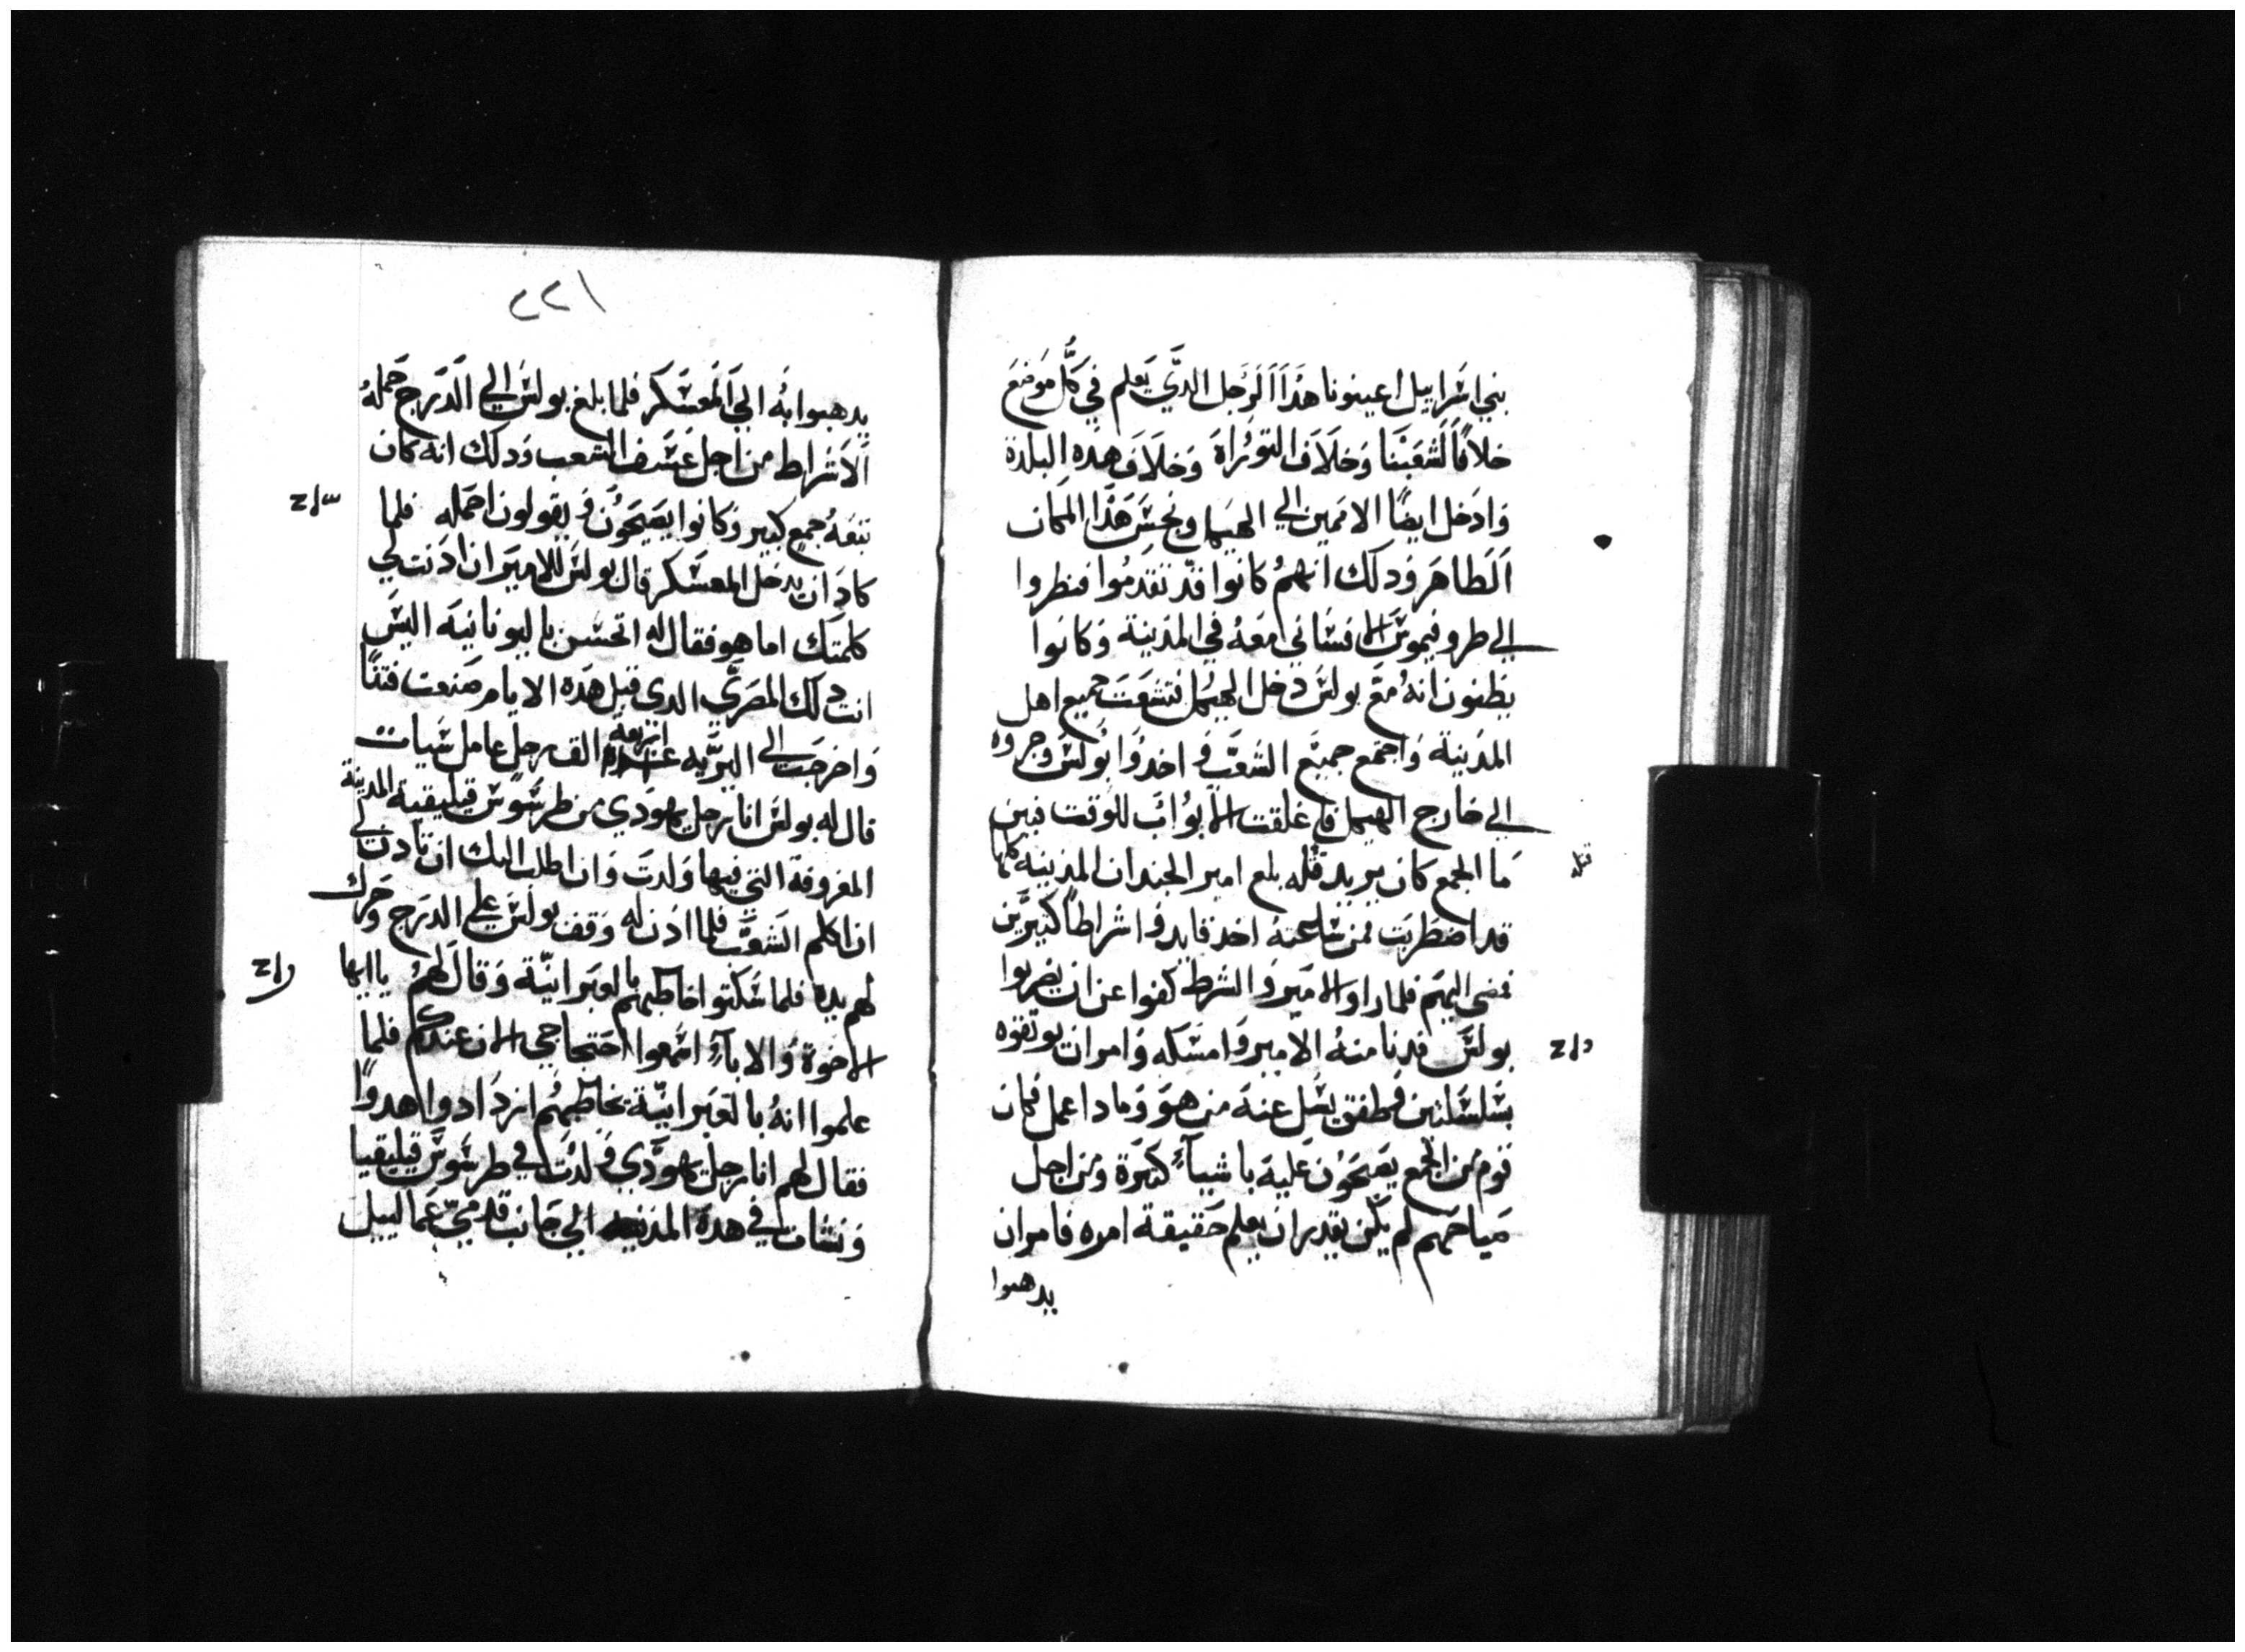 بني اسراييل اعينونا هذا الرجل الدي يعلم في كل موضع
خلافا لشعبنا وخلاف التوراة وخلاف هده البلدة
وادخل ايضا الاممين الي الهيكل ونجس هذا المكان
الطاهر ودلك انهم كانوا قد تقدموا فنظروا
الي طروفيموس الافساني معه في المدينة وكانوا
يظنون انه مع بولس دخل الهيكل فتشعت جميع اهل
المدينة واجتمع جميع الشعب و اخدوا بولس وجروه
الي خارج الهيكل فاغلقت الابواب للوقت فبين
ما الجمع كان يريد قتله بلغ امير الجند ان المدينة كلها
قتله
قد اضطربت فمن ساعته اخد قايد و اشراطا كبيرين
فمضي اليهم فلما راوا الامير و الشرط كفوا عن ان يضربوا
بولس فدنا منه الامير وامسكه وامر ان يوتقوه
بسلسلتين فطفق يسل عنه من هو وما دا عمل فكان
قوم من الجمع يصيحون عليه باشياء كتيرة ومن اجل
صياحهم لم يكن يقدر ان يعلم حقيقة امره فامر ان
يدهبوا
٢٢١
يدهبوا به الي المعسكر فلما بلغ بولس الي الدرج حمله
الاشراط من اجل عسف الشعب ودلك انه كان
تبعه جمع كبير وكانوا يصيحون و يقولون احمله فلما
كاد ان يدخل المعسكر قال بولس للامير ان ادنت لي
كلمتك اما هو فقال له اتحسن باليونانية اليس
انت دلك المصري الدي قبل هده الايام صنعت فتنا
واخرجت الي البرية اربعة الف رجل عامل سيات
قال له بولس انا رجل يهودي من طرسوس قيليقية المدينة
المعروفة التي فيها ولدت وان اطلب اليك ان تادن لي
ان اكلم الشعب فلما ادن له وقف بولس علي الدرج وحرك
لهم يده فلما سكتوا خاطبهم بالعبرانية وقال لهم يا ايها
الاخوة والاباء اسمعوا احتجاجي الان عندكم فلما
علموا انه بالعبرانية يخاطبهم ازدادوا هدوا
فقال لهم انا رجل يهودي ولدت في طرسوس قيليقيا
ونشات في هده المدينه الي جانب قدمي غمالييل